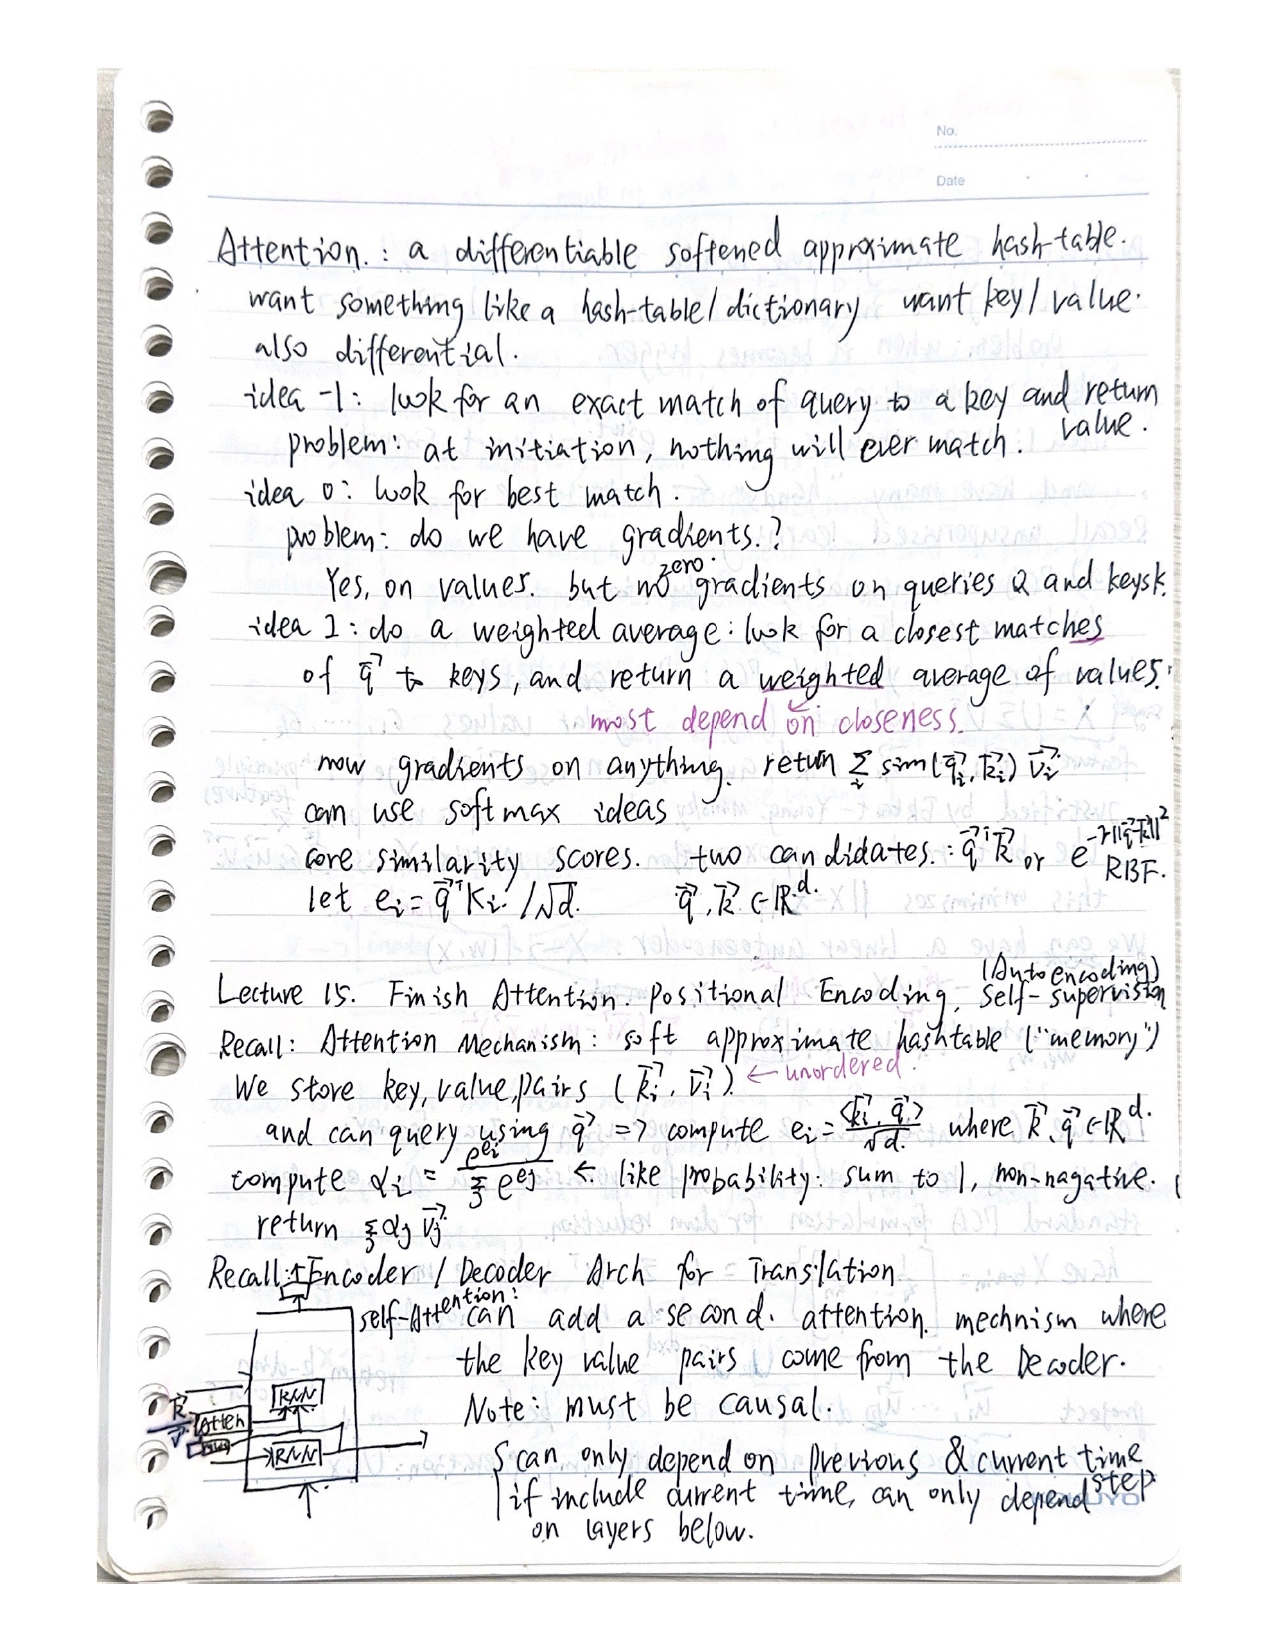 No.
Date
Attention. : a differentiable softened approximate hash-table.
want something like a hash-table/dictionary want key/value.
also differential.
idea -1: look for an exact match of query to a key and return
value.
problem: at initiation, nothing will ever match.
idea 0: look for best match.
problem: do we have gradients.?
zero.
Yes, on values. but no gradients on queries Q and keysk.
idea 1: do a weighted average: look for a closest matches
of q⃗ to keys, and return a weighted average of values.
most depend on closeness.
now gradients on anything. return Σᵢ sim(q⃗ᵢ, k⃗ᵢ) v⃗ᵢ
can use softmax ideas
core similarity scores. two candidates.: q⃗ᵀk⃗ or e^{-γ||q⃗-k⃗||²}
RBF.
let eᵢ = q⃗ᵀkᵢ /√d. q⃗, k⃗ ∈ ℝᵈ.
(Autoencoding)
Lecture 15. Finish Attention. Positional Encoding, Self-supervision
Recall: Attention Mechanism: soft approximate hashtable ("memory")
We store key, value, pairs (k⃗ᵢ, v⃗ᵢ) ← unordered.
and can query using q⃗ => compute eᵢ = <k⃗ᵢ, q⃗>/√d. where k⃗, q⃗ ∈ ℝᵈ.
compute αᵢ = e^{eᵢ} / Σⱼ e^{eⱼ} ← like probability: sum to 1, non-nagative.
return Σⱼ αⱼ v⃗ⱼ
Recall: Encoder / Decoder Arch for Translation
self-Attention: can add a second. attention mechnism where
the key value pairs come from the Decoder.
Note: must be causal.
RNN
k⃗
v⃗
Atten
RNN
can only depend on previous & current time
step
if include current time, can only depend
on layers below.